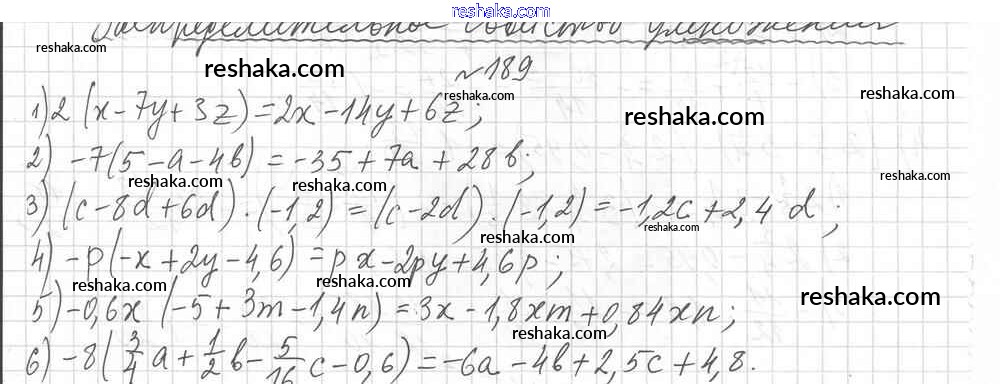 www.reshaka.com
Распределительное свойство умножения
reshaka.com
reshaka.com
reshaka.com
№189
reshaka.com
reshaka.com
1) 2 (x - 7y + 3z) = 2x - 14y + 6z;
reshaka.com
2) -7(5 - a - 4b) = -35 + 7a + 28b;
reshaka.com
reshaka.com
reshaka.com
3) (c - 8d + 6d) · (-1,2) = (c - 2d) · (-1,2) = -1,2c + 2,4 d;
reshaka.com
reshaka.com
4) -p(-x + 2y - 4,6) = px - 2py + 4,6p;
reshaka.com
5) -0,6x (-5 + 3m - 1,4n) = 3x - 1,8xm + 0,84xn;
reshaka.com
6) -8(3/4 a + 1/2 b - 5/16 c - 0,6) = -6a - 4b + 2,5c + 4,8.
reshaka.com